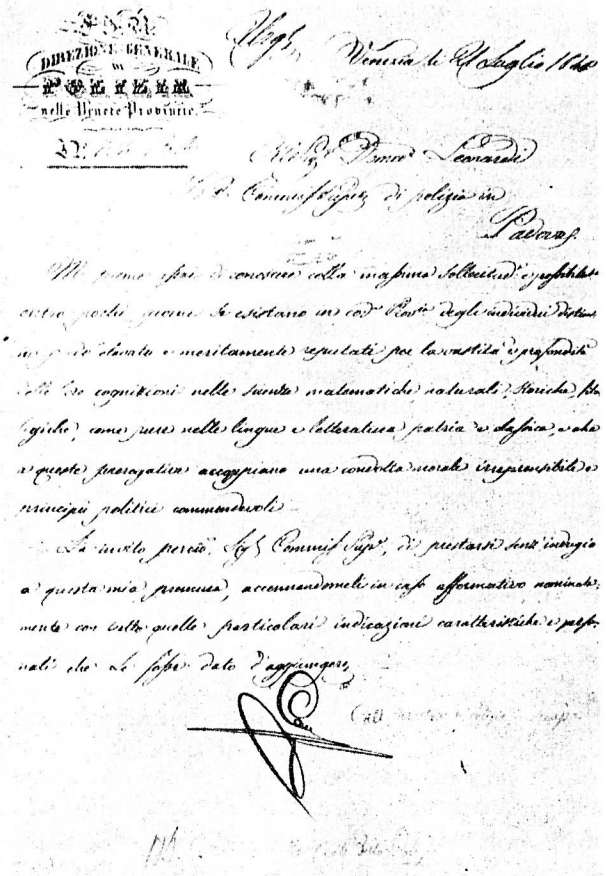 DIREZIONE GENERALE
DI
POLIZIA
nelle Venete Provincie.
N.
Venezia li 21 Luglio
Leonardi
di polizia in
Padova
di conoscere colla massima sollecitud.e possibilm.
entro pochi giorni se esistano in cod.a Prov.a degli individui distin
ti elevato e meritamente reputati per la vastità e profondità
delle loro cognizioni nelle scienze matematiche naturali, storiche, filo
logiche, come pure nelle lingue e letteratura patria e classica, e che
a queste prerogative accoppiano una condotta morale irreprensibile e
principii politici commendevoli.
La invito perciò, Sig. Commiss. Sup.e, di prestarsi senz'indugio
a questa mia premura, accennandomeli in caso affermativo nominata
mente con tutte quelle particolari indicazioni caratteristiche e perso
nali che Le fosse dato d'aggiungere.